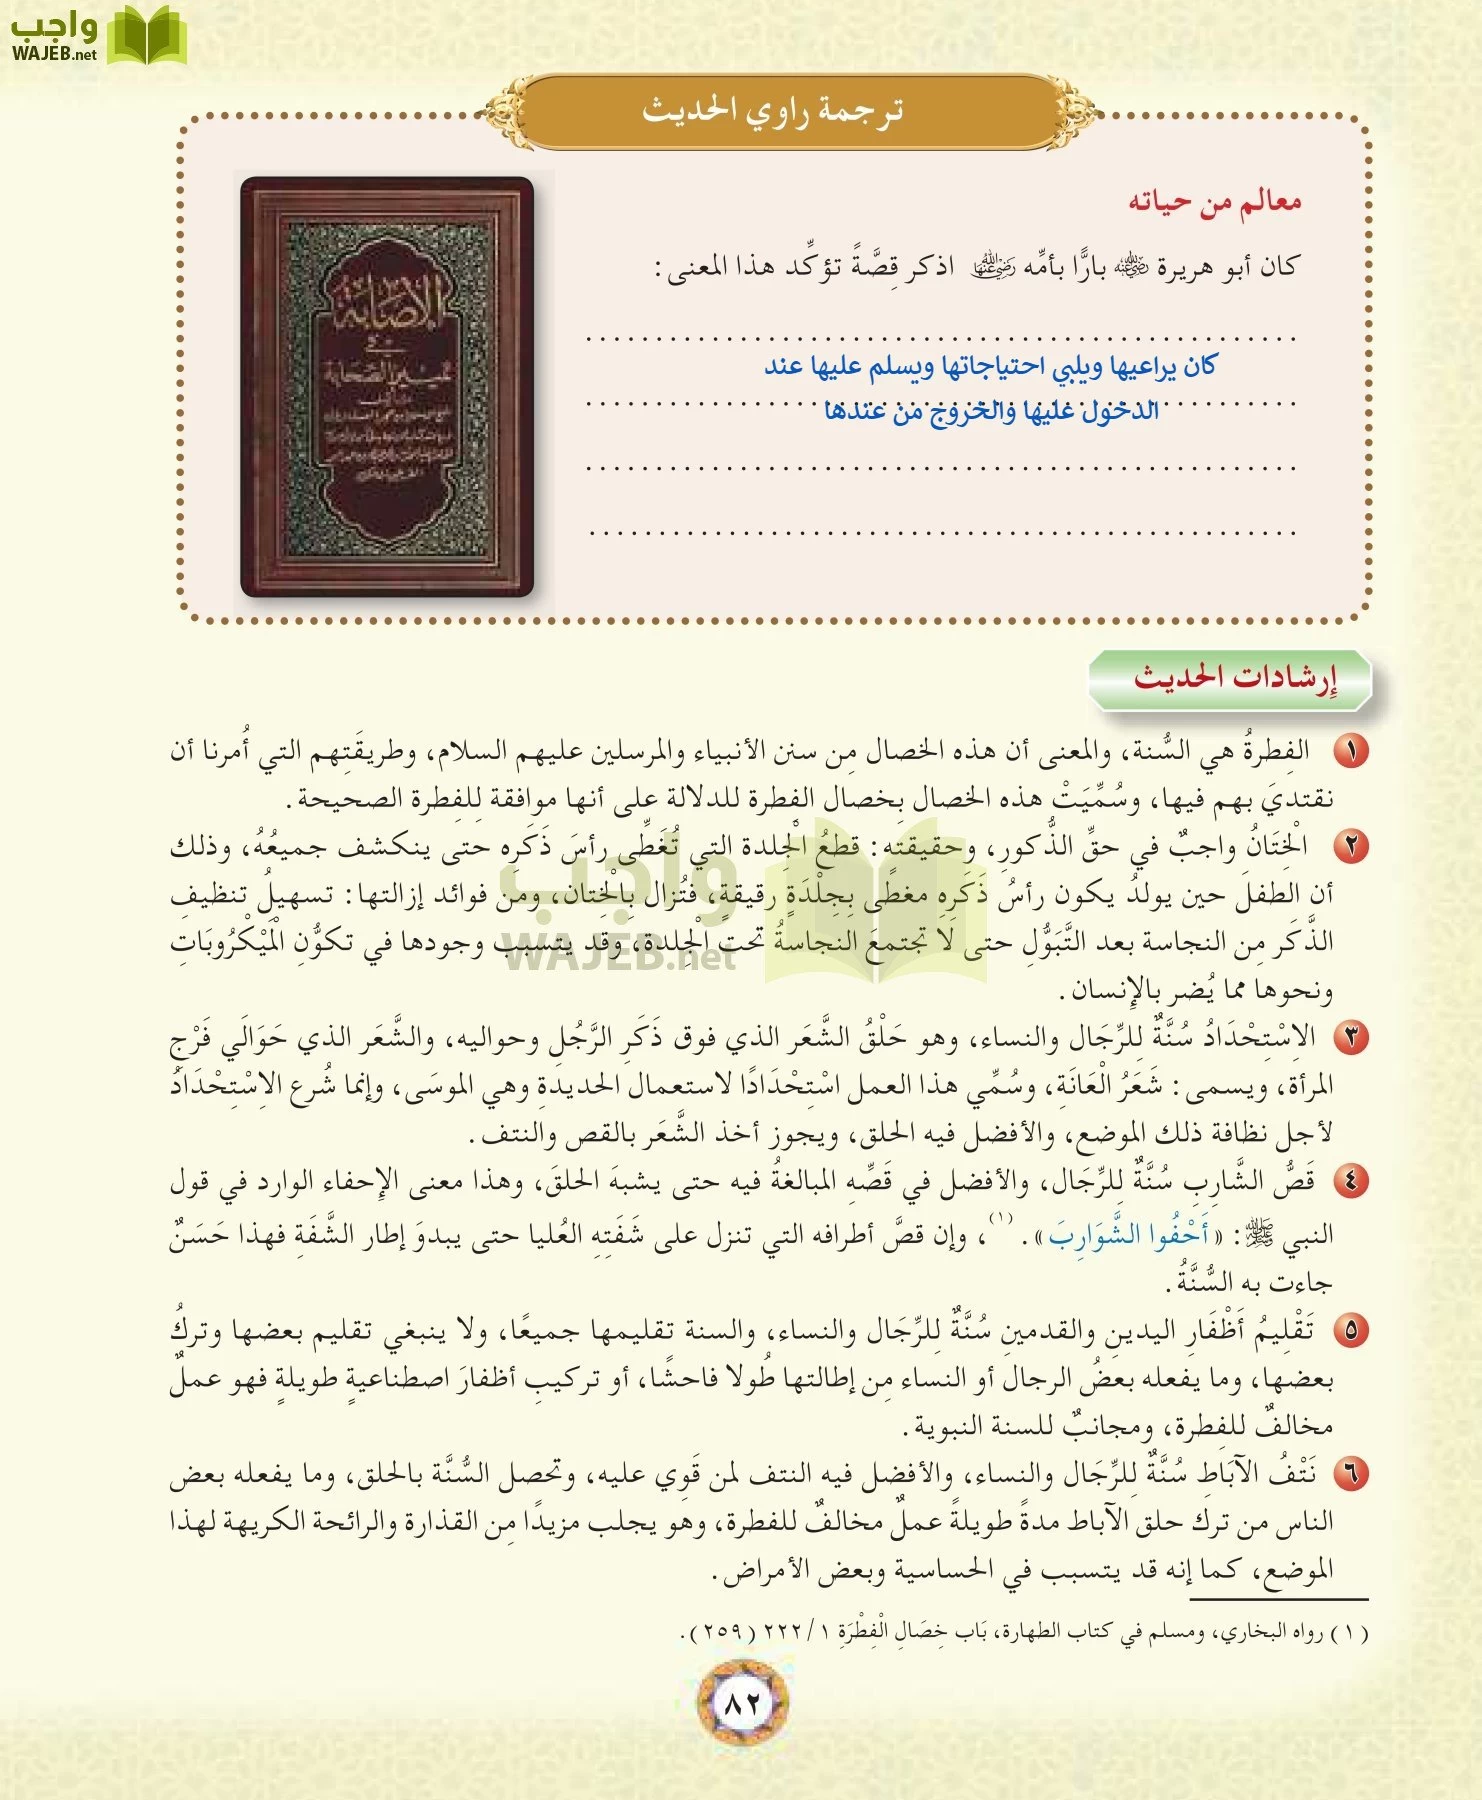 واجب
WAJEB.net
ترجمة راوي الحديث
معالم من حياته
كان أبو هريرة رضي الله عنه بارًّا بأمِّه رضي الله عنها اذكر قِصَّةً تؤكِّد هذا المعنى:
كان يراعيها ويلبي احتياجاتها ويسلم عليها عند
الدخول عليها والخروج من عندها
الإصابة
في
تمييز الصحابة
إرشادات الحديث
١ الفِطرةُ هي السُّنة، والمعنى أن هذه الخصال مِن سنن الأنبياء والمرسلين عليهم السلام، وطريقَتِهم التي أُمرنا أن
نقتديَ بهم فيها، وسُمِّيَتْ هذه الخصال بِخصال الفِطرة للدلالة على أنها موافقة لِلفِطرة الصحيحة.
٢ الْخِتَانُ واجبٌ في حقِّ الذُّكورِ، وحقيقته: قطعُ الْجِلدة التي تُغَطِّى رأسَ ذَكَرِه حتى ينكشف جميعُهُ، وذلك
أن الطفلَ حين يولدُ يكون رأسُ ذَكَرِهِ مغطًى بِجِلْدَةٍ رقيقةٍ، فتُزال بِالْخِتان، ومن فوائد إزالتها: تسهيلُ تنظيفِ
الذَّكَر مِن النجاسة بعد التَّبَوُّل حتى لا تجتمعَ النجاسةُ تحت الْجِلدة، وقد يتسبب وجودها في تكوُّنِ الْمَيْكْرُوبَاتِ
ونحوها مما يُضر بالإنسان.
٣ الاِسْتِحْدَادُ سُنَّةٌ لِلرِّجَال والنساء، وهو حَلْقُ الشَّعَر الذي فوق ذَكَرِ الرَّجُل وحواليه، والشَّعَر الذي حَوَالَي فَرْجِ
المرأة، ويسمى: شَعَرُ الْعَانَةِ، وسُمِّي هذا العمل اسْتِحْدَادًا لاستعمال الحديدةِ وهي الموسَى، وإنما شُرع الاِسْتِحْدَادُ
لأجل نظافة ذلك الموضع، والأفضل فيه الحلق، ويجوز أخذ الشَّعَر بالقص والنتف.
٤ قَصُّ الشَّارِبِ سُنَّةٌ لِلرِّجَال، والأفضل في قَصِّهِ المبالغةُ فيه حتى يشبهَ الحلقَ، وهذا معنى الإحفاء الوارد في قول
النبي ﷺ: «أَحْفُوا الشَّوَارِبَ».(١)، وإن قصَّ أطرافه التي تنزل على شَفَتِهِ العُليا حتى يبدوَ إطار الشَّفَةِ فهذا حَسَنٌ
جاءت به السُّنَّةُ.
٥ تَقْلِيمُ أَظْفَارِ اليدينِ والقدمينِ سُنَّةٌ لِلرِّجَال والنساء، والسنة تقليمها جميعًا، ولا ينبغي تقليم بعضها وتركُ
بعضها، وما يفعله بعضُ الرجال أو النساء مِن إطالتها طُولا فاحشًا، أو تركيبِ أظفارَ اصطناعيةٍ طويلةٍ فهو عملٌ
مخالفٌ للفِطرة، ومجانبٌ للسنة النبوية.
٦ نَتْفُ الآبَاطِ سُنَّةٌ لِلرِّجَال والنساء، والأفضل فيه النتف لمن قَوِي عليه، وتحصل السُّنَّة بالحلق، وما يفعله بعض
الناس من ترك حلق الآباط مدةً طويلةً عملٌ مخالفٌ للفطرة، وهو يجلب مزيدًا مِن القذارة والرائحة الكريهة لهذا
الموضع، كما إنه قد يتسبب في الحساسية وبعض الأمراض.
(١) رواه البخاري، ومسلم في كتاب الطهارة، بَاب خِصَالِ الْفِطْرَةِ ١/ ٢٢٢ (٢٥٩).
٨٢